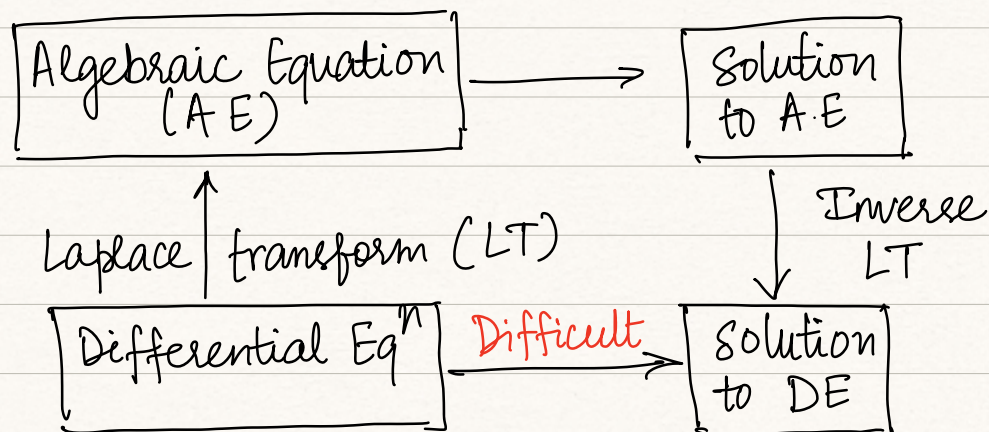 Algebraic Equation
(A E)
Solution
to A.E
Laplace transform (LT)
Inverse
LT
Differential Eqⁿ
Difficult
Solution
to DE